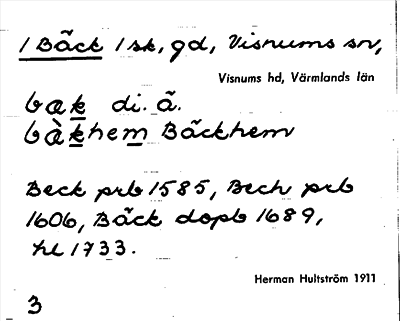 1 Bäck 1 sk, gd, Visnums sn,
Visnums hd, Värmlands län
bak di. ā.
bàkhem Bäckhem
Beck prb 1585, Bech prb
1606, Bäck dopb 1689,
hl 1733.
Herman Hultström 1911
3